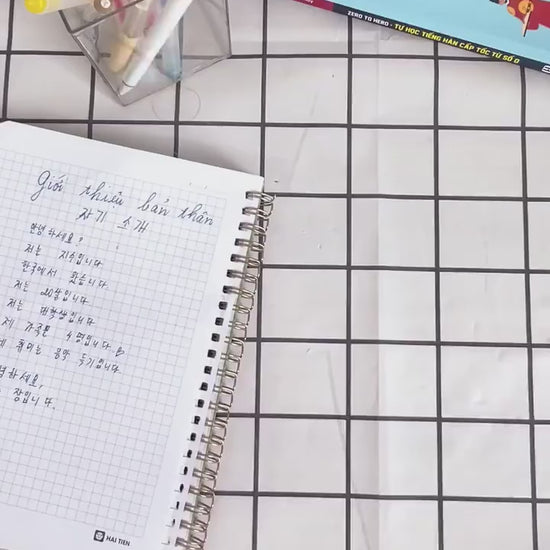 ZERO TO HERO - TỰ HỌC TIẾNG HÀN CẤP TỐC TỪ SỐ 0
Giới thiệu bản thân
자기 소개
안녕하세요?
저는 지수입니다
한국에서 왔습니다
저는 20살입니다
저는 대학생입니다
제 가족은 4명입니다
취미는 음악 듣기입니다
하세요,
장입니다.
HẢI TIẾN